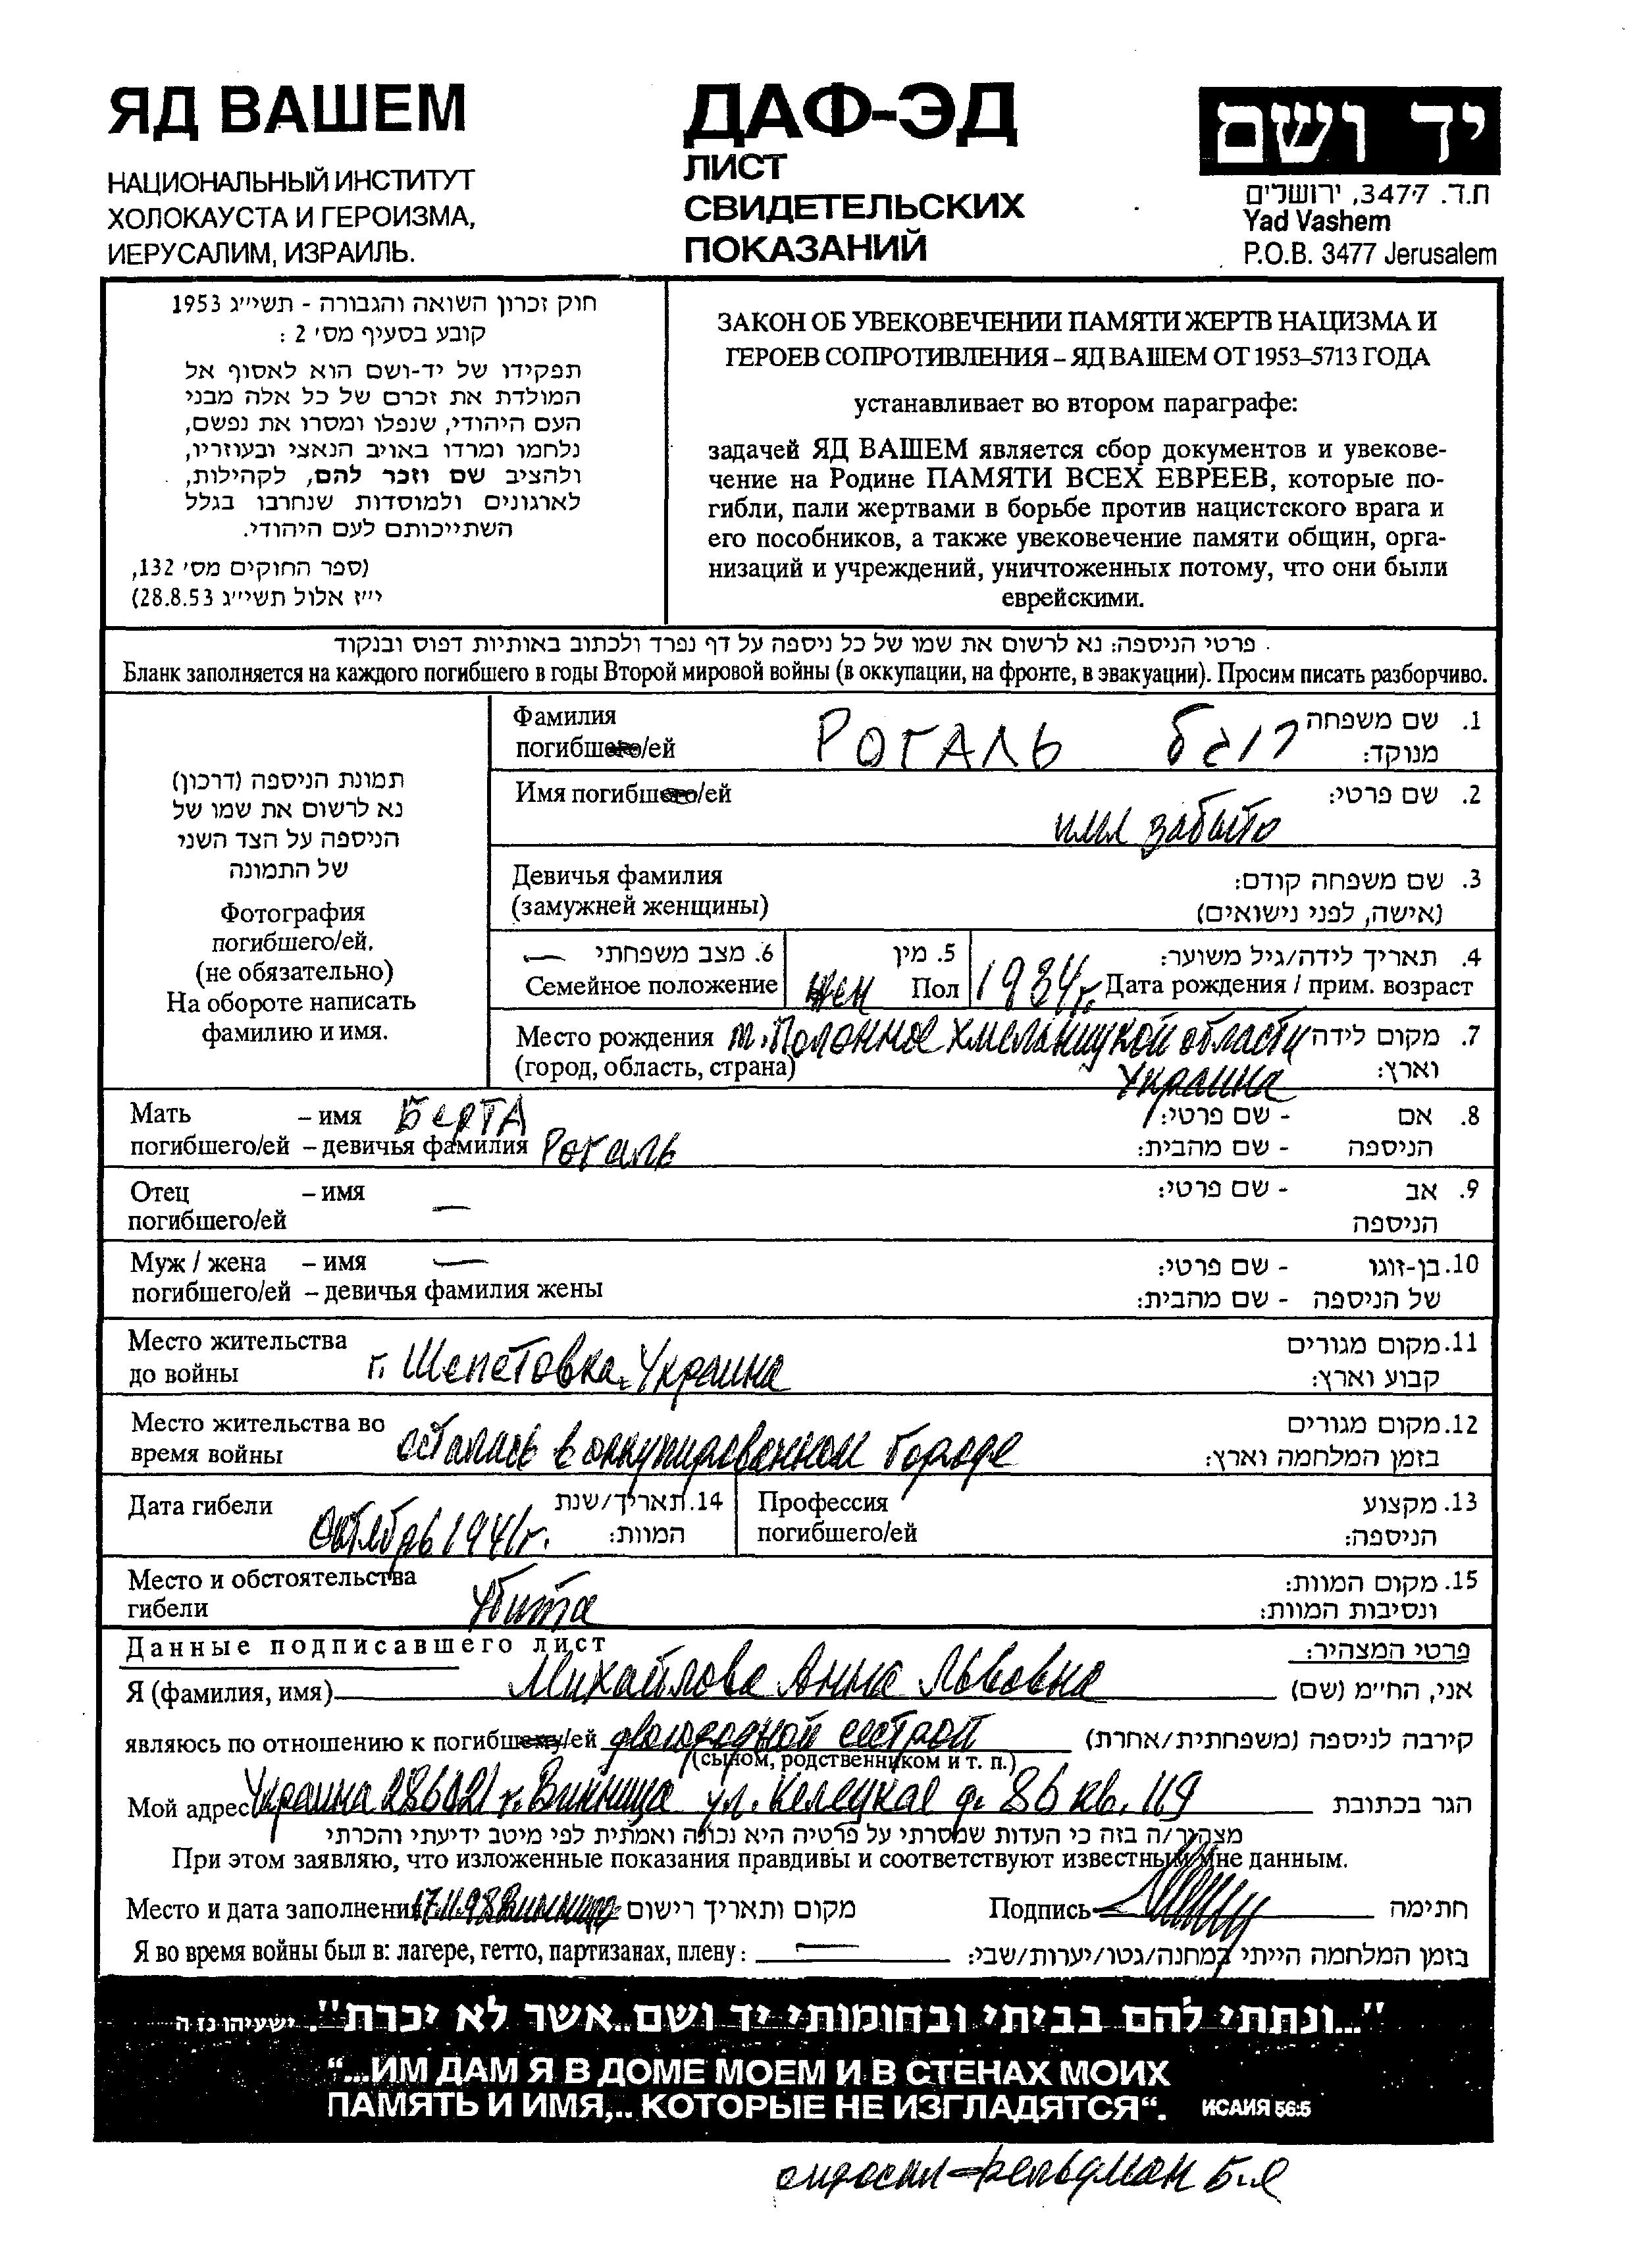 ЯД ВАШЕМ
НАЦИОНАЛЬНЫЙ ИНСТИТУТ
ХОЛОКАУСТА И ГЕРОИЗМА,
ИЕРУСАЛИМ, ИЗРАИЛЬ.
ДАФ-ЭД
ЛИСТ
СВИДЕТЕЛЬСКИХ
ПОКАЗАНИЙ
יד ושם
ת.ד. 3477, ירושלים
Yad Vashem
P.O.B. 3477 Jerusalem
חוק זכרון השואה והגבורה - תשי״ג 1953
קובע בסעיף מס׳ 2 :
תפקידו של יד-ושם הוא לאסוף אל
המולדת את זכרם של כל אלה מבני
העם היהודי, שנפלו ומסרו את נפשם,
נלחמו ומרדו באויב הנאצי ובעוזריו,
ולהציב שם וזכר להם, לקהילות,
לארגונים ולמוסדות שנחרבו בגלל
השתייכותם לעם היהודי.
(ספר החוקים מס׳ 132,
י״ז אלול תשי״ג 28.8.53)
ЗАКОН ОБ УВЕКОВЕЧЕНИИ ПАМЯТИ ЖЕРТВ НАЦИЗМА И
ГЕРОЕВ СОПРОТИВЛЕНИЯ – ЯД ВАШЕМ ОТ 1953–5713 ГОДА
устанавливает во втором параграфе:
задачей ЯД ВАШЕМ является сбор документов и увекове-
чение на Родине ПАМЯТИ ВСЕХ ЕВРЕЕВ, которые по-
гибли, пали жертвами в борьбе против нацистского врага и
его пособников, а также увековечение памяти общин, орга-
низаций и учреждений, уничтоженных потому, что они были
еврейскими.
פרטי הניספה: נא לרשום את שמו של כל ניספה על דף נפרד ולכתוב באותיות דפוס ובנקוד
Бланк заполняется на каждого погибшего в годы Второй мировой войны (в оккупации, на фронте, в эвакуации). Просим писать разборчиво.
תמונת הניספה (דרכון)
נא לרשום את שמו של
הניספה על הצד השני
של התמונה
Фотография
погибшего/ей.
(не обязательно)
На обороте написать
фамилию и имя.
Фамилия РОГАЛЬ רוגל 1. שם משפחה
погибшего/ей מנוקד:
Имя погибшего/ей имя забыто 2. שם פרטי:
Девичья фамилия 3. שם משפחה קודם:
(замужней женщины) (אישה, לפני נישואים)
6. מצב משפחתי — 5. מין 4. תאריך לידה/גיל משוער:
Семейное положение жен Пол 1934г. Дата рождения / прим. возраст
Место рождения м. Полонное Хмельницкой области 7. מקום לידה
(город, область, страна) Украина וארץ:
Мать – имя БЕРТА 8. אם - שם פרטי:
погибшего/ей – девичья фамилия Рогаль הניספה - שם מהבית:
Отец – имя — 9. אב - שם פרטי:
погибшего/ей הניספה
Муж / жена – имя — 10. בן-זוגו - שם פרטי:
погибшего/ей – девичья фамилия жены של הניספה - שם מהבית:
Место жительства 11. מקום מגורים
до войны г. Шепетовка, Украина קבוע וארץ:
Место жительства во 12. מקום מגורים
время войны осталась в оккупированном городе בזמן המלחמה וארץ:
Дата гибели 14. תאריך/שנת Профессия 13. מקצוע
октябрь 1941г. המוות: погибшего/ей הניספה:
Место и обстоятельства 15. מקום המוות:
гибели Убита ונסיבות המוות:
Данные подписавшего лист פרטי המצהיר:
Я (фамилия, имя) Михайлова Анна Львовна אני, החי״מ (שם)
являюсь по отношению к погибшему/ей двоюродной сестрой קירבה לניספה (משפחתית/אחרת)
(сыном, родственником и т. п.)
Мой адрес Украина 286021 г. Винница ул. Келецкая д. 86 кв. 119 הגר בכתובת
מצהיר/ה בזה כי העדות שמסרתי על פרטיה היא נכונה ואמתית לפי מיטב ידיעתי והכרתי
При этом заявляю, что изложенные показания правдивы и соответствуют известным мне данным.
Место и дата заполнения 17.11.98 Винница מקום ותאריך רישום Подпись חתימה
Я во время войны был в: лагере, гетто, партизанах, плену: — בזמן המלחמה הייתי במחנה/גטו/יערות/שבי:
"...ונתתי להם בביתי ובחומותי יד ושם..אשר לא יכרת". ישעיהו נז ה
“...ИМ ДАМ Я В ДОМЕ МОЕМ И В СТЕНАХ МОИХ
ПАМЯТЬ И ИМЯ,.. КОТОРЫЕ НЕ ИЗГЛАДЯТСЯ“. ИСАИЯ 56:5
опросил - Фельдман Б.Я